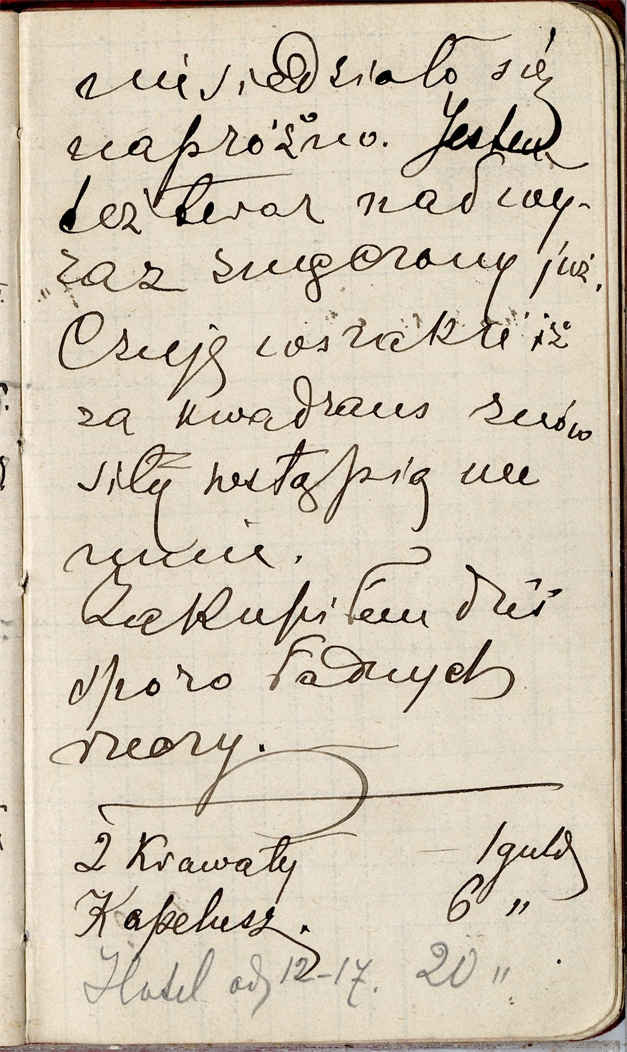 nie siedziało się
napróżno. Jestem
też teraz nad wy-
raz zmęczony już.
Czuję wszakże iż
za kwadrans znów
siły wstąpią we
mnie.
Zakupiłem dziś
sporo ładnych
rzeczy.
2 Krawaty — 1 guld
Kapelusz. 6 "
Hotel od 12-17. 20 "